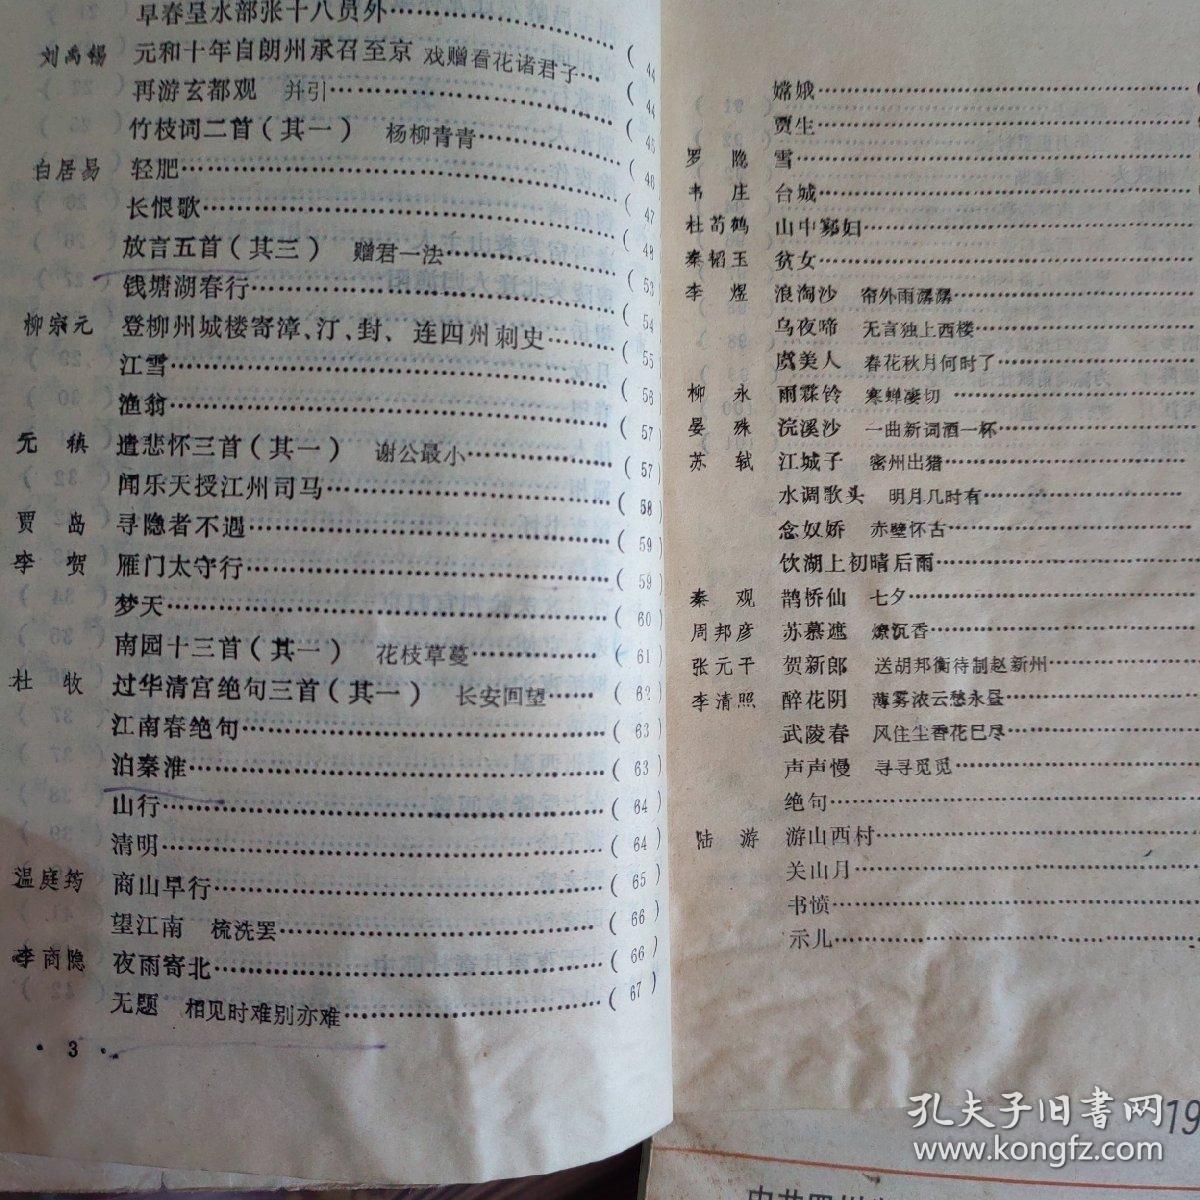 早春呈水部张十八员外
刘禹锡 元和十年自朗州承召至京 戏赠看花诸君子…(44
再游玄都观 并引……(44
竹枝词二首(其一) 杨柳青青……(45
白居易 轻肥……(46
长恨歌……(47
放言五首(其三) 赠君一法……(48
钱塘湖春行……(53
柳宗元 登柳州城楼寄漳、汀、封、连四州刺史……(54
江雪……(55
渔翁……(56
元稹 遣悲怀三首(其一) 谢公最小……(57
闻乐天授江州司马……(57
贾岛 寻隐者不遇……(58
李贺 雁门太守行……(59
梦天……(59
南园十三首(其一) 花枝草蔓……(60
杜牧 过华清宫绝句三首(其一) 长安回望……(61
江南春绝句……(62)
泊秦淮……(63)
山行……(63)
清明……(64)
温庭筠 商山早行……(64)
望江南 梳洗罢……(65)
李商隐 夜雨寄北……(66)
无题 相见时难别亦难……(67)
· 3 ·
嫦娥……(
贾生……
罗隐 雪……
韦庄 台城……
杜荀鹤 山中寡妇……
秦韬玉 贫女……
李煜 浪淘沙 帘外雨潺潺……
乌夜啼 无言独上西楼……
虞美人 春花秋月何时了……
柳永 雨霖铃 寒蝉凄切……
晏殊 浣溪沙 一曲新词酒一杯……
苏轼 江城子 密州出猎……
水调歌头 明月几时有……
念奴娇 赤壁怀古……
饮湖上初晴后雨……
秦观 鹊桥仙 七夕……
周邦彦 苏慕遮 燎沉香……
张元干 贺新郎 送胡邦衡待制赴新州……
李清照 醉花阴 薄雾浓云愁永昼……
武陵春 风住尘香花已尽……
声声慢 寻寻觅觅……
绝句……
陆游 游山西村……
关山月……
书愤……
示儿……
孔夫子旧书网
www.kongfz.com
19